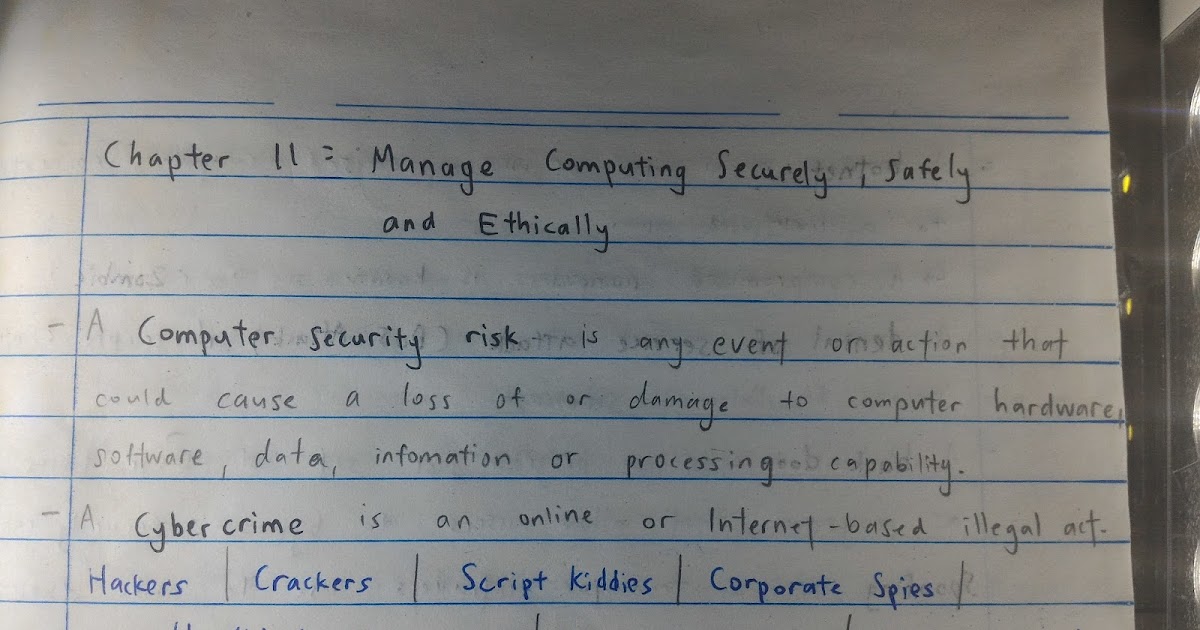 Chapter 11 : Manage Computing Securely, Safely
and Ethically
- A Computer security risk is any event or action that
could cause a loss of or damage to computer hardware,
software, data, infomation or processing capability.
- A Cybercrime is an online or Internet-based illegal act.
Hackers | Crackers | Script Kiddies | Corporate Spies |